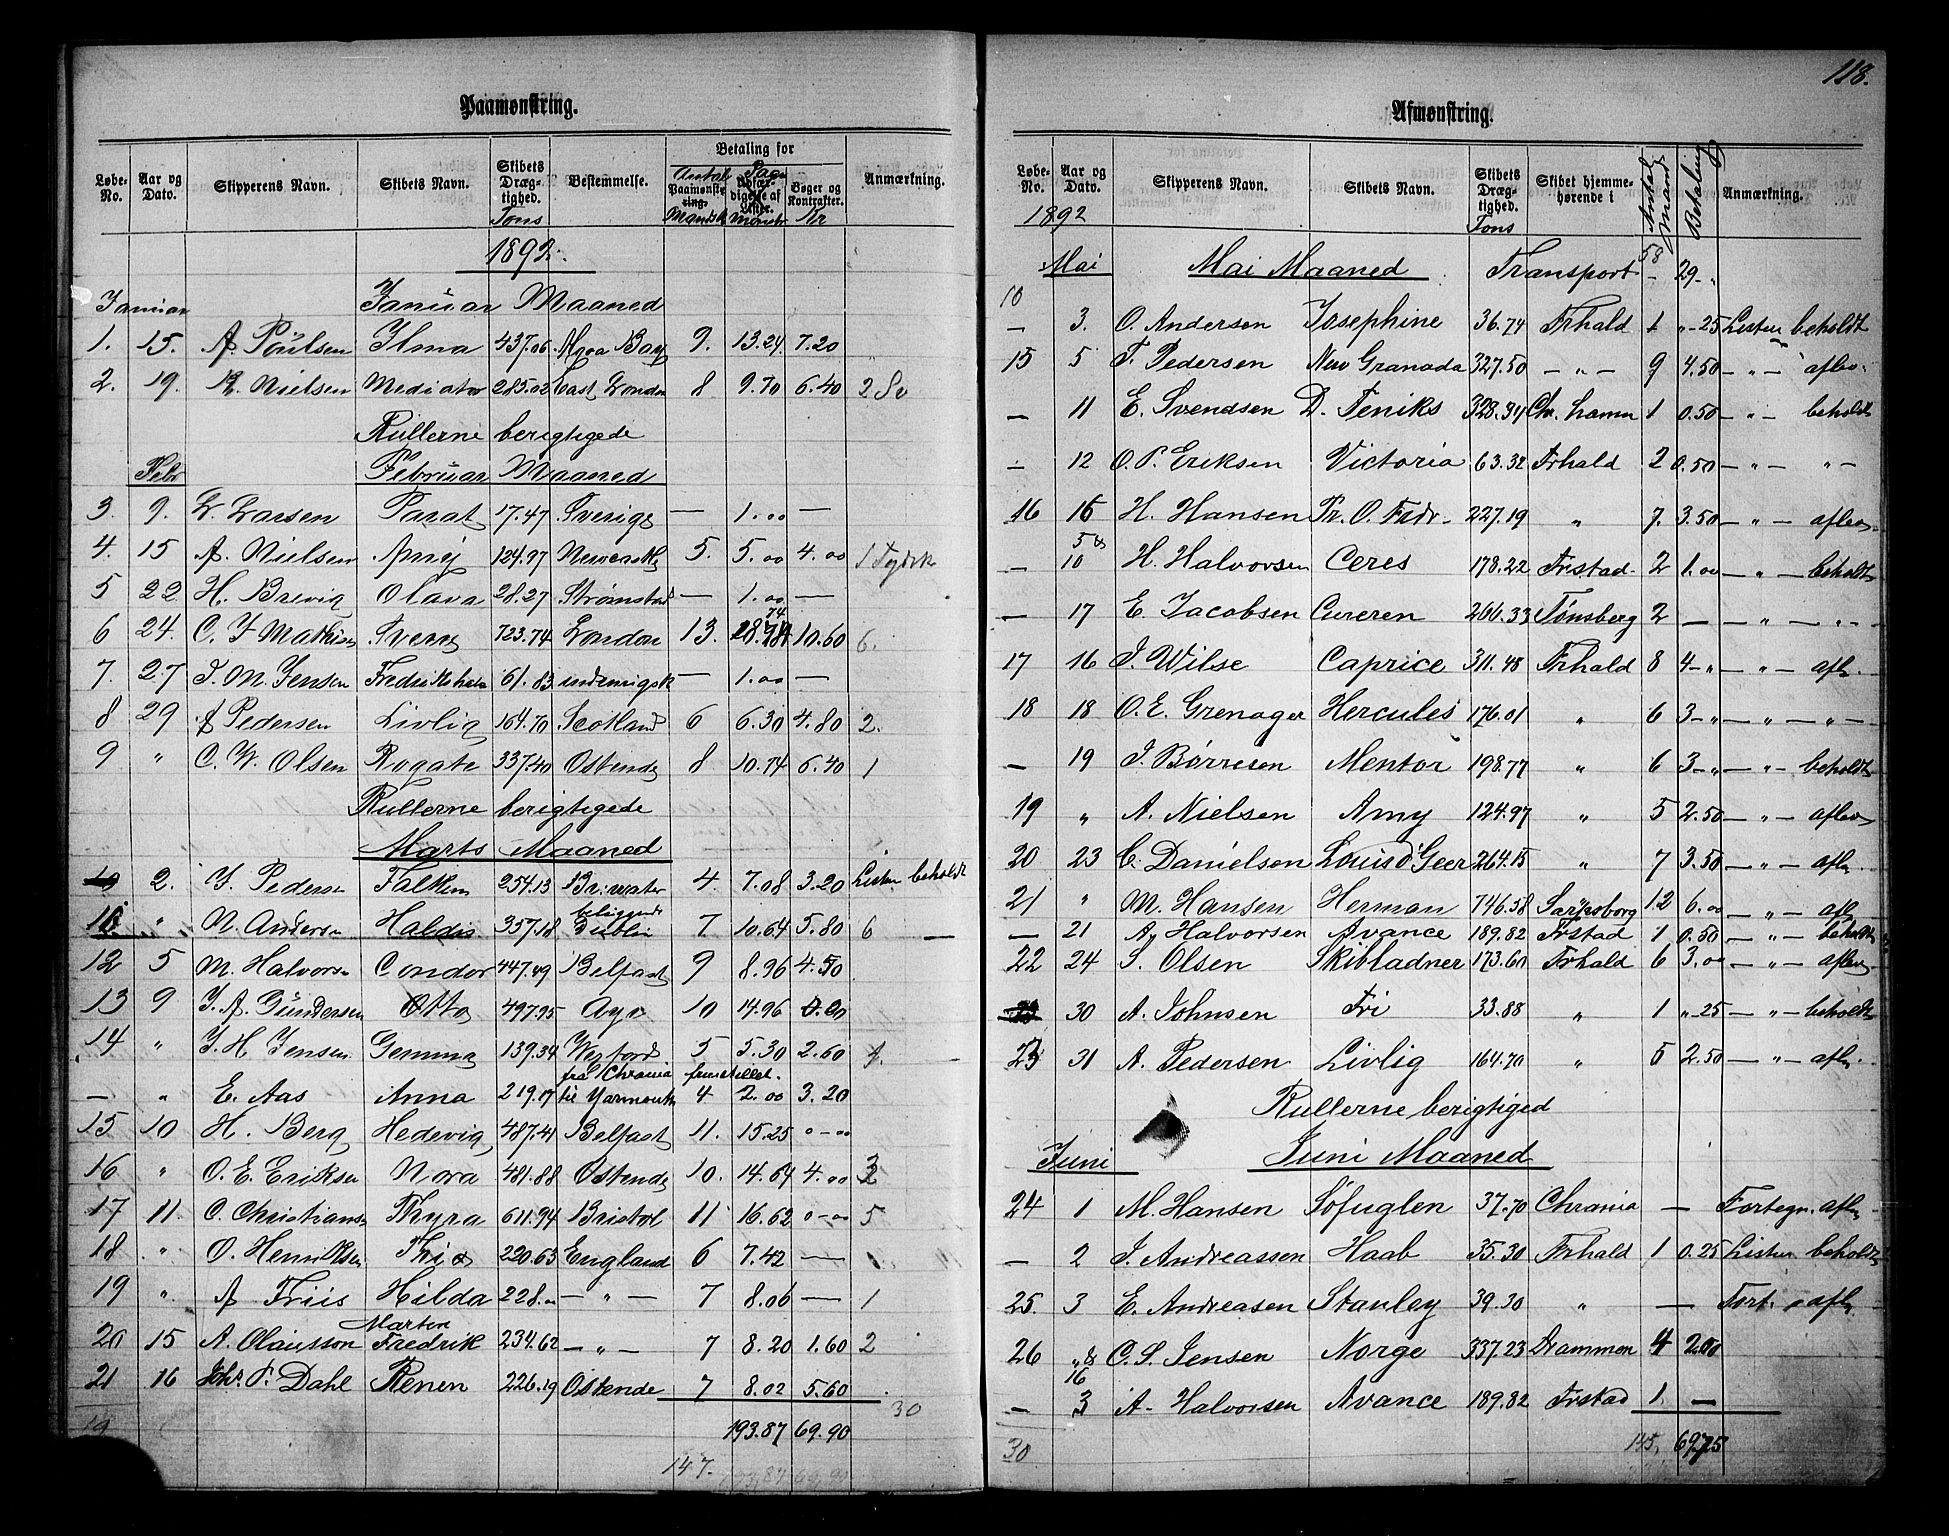 118.
Paamønstring.
Løbe-No. Aar og Dato. Skipperens Navn. Skibets Navn. Skibets Dræg-tighed. Tons Bestemmelse. Betaling for Antal Paamønstring Mandsk. Bøger og Kontrakter. Kr Anmærkning.
1892.
Januar Januar Maaned
1. 15. A. Poulsen Ilma 437.06 Algoa Bay 9. 13.24 7.20
2. 19. Nielsen Mediator 285.02 East London 8 9.70 6.40 2 Sv
Rullerne berigtigede
Febr Februar Maaned
3. 9. L. Larsen Parat 17.47 Sverige — 1.00 —
4. 15 A. Nielsen Amy 124.97 Newcastle 5. 5.00 4.00 1 Tydsk
5 22 H. Brevig Olava 28.27 Strømstad — 1.00 —
6 24. C. F. Mathisen Sverre 723.74 London 13. 28.74 10.60 6.
7. 27 J. M. Jensen Fredrikshald 61.83 indenrigsk — 1.00 —
8 29 A Pedersen Livlig 164.70 Scotland 6 6.30 4.80 2.
9 " C. W. Olsen Rogate 337.40 Ostende 8 10.74 6.40 1
Rullerne berigtigede
Marts Maaned
10 2. J. Pedersen Falken 254.13 Briwater 4. 7.08 3.20 Listen beholdt
" N. Andersen Haldis 357.18 beliggende Dublin 7 10.64 5.80 6 —
12 5 M. Halvorsn Condor 447.49 Belfast 9 8.96 4.50
13 9 J. A. Gundersen Otto 497.95 Ayr 10 14.96
14 " J. H. Jensen Gemma 139.34 Wexford 5 5.30 2.60
— " E. Aas Anna 219.17 fra Chrania til Yarmouth 4 2.00 3.20
15 10 H. Berg Hedevig 487.41 Belfast 11. 15.25 0-00
16 " O. E. Eriksen Nora 481.88 Ostende 10. 14.64 4.00
17 11. C. Christiansn Thyra 611.94 Bristol 11 16.62 0-00 5
18 " O. Henriksen 220.63 England 6 7.42 —
19 " A Friis Hilda 228.00 — " — 7 8.06 — 1
20 15 A. Olausson Morten Fredrik 234.62 — " — 7 8.20 1.60 2
21 16 Johs. P. Dahl Renen 226.19 Ostende 7 8.02 5.60
30
19 193.87 69.90
147. 193.87 69.90
Afmønstring.
Løbe-No. Aar og Dato. Skipperens Navn. Skibets Navn. Skibets Dræg-tighed. Tons Skibet hjemme-hørende i Antal Mand Betaling Anmærkning.
1892
Mai Mai Maaned Transport 58 29 - "
10
— 3. O. Andersen Josephine 36.74 Frhald 1 "-25 Listen beholdt
15 5 F. Pedersen New Granada 327.50 — " — 9 4.50 — " — aflev.
— 11 E. Svendsen D. Feniks 328.34 Chr. havn 1 0.50 — " — beholdt
— 12 O. P. Eriksen Victoria 63.32 Frhald 2 0.50 — " — " —
16 16 H. Hansen Pr. O. Fredr. 227.19 " 7. 3.50 — " — aflev.
— 5 & 10 H. Halvorsen Ceres 178.22 Frstad. 2 1.00 — " — beholdt
— 17 E. Jacobsen Cureren 206.33 Tønsberg 2 — — " — " —
17 16 J. Wilse Caprice 311.48 Frhald 8 4-" — " — afl.
18 18 O. E. Grenager Hercules 176.01 " 6 3-" — " — " —
— 19 J. Børresen Mentor 198.77 " 6 3-" — " — beholdt
19 " A. Nielsen Amy 124.97 " 5 2.50 — " — aflev
20 23 C. Danielsen Louis d'Geer 264.15 " 7 3.50 — " — afl.
21 " M. Hansen Herman 746.58 Sarpsborg 12 6.00 — " — afl
— 21 A. Halvorsen Avance 189.82 Frstad 1 0.50 — " — beholdt
22 24 S. Olsen Skibladner 173.60 Frhald 6 3.00 — " — aflev
30 A. Johnsen Fri 33.88 " 1 "-25 — " — beholdt
23 31 A. Pedersen Livlig 164.70 " 5 2.50 — " — afl.
Rullerne berigtiged
Juni Juni Maaned
24 1 M. Hansen Søfuglen 37.70 Chrania — Fortegn. afl
— 2 J. Andreassen Haab 35.30 Frhald 1 0.25 Listen beholdt
25. 3 E. Andreasen Stanley 39.30 " — Fort. afl
26 " & 16 C. S. Jensen Norge 337.23 Drammen 4 2.00
— 3 A. Halvorsen Avance 189.82 Frstad 1. —
30 145, 69.75